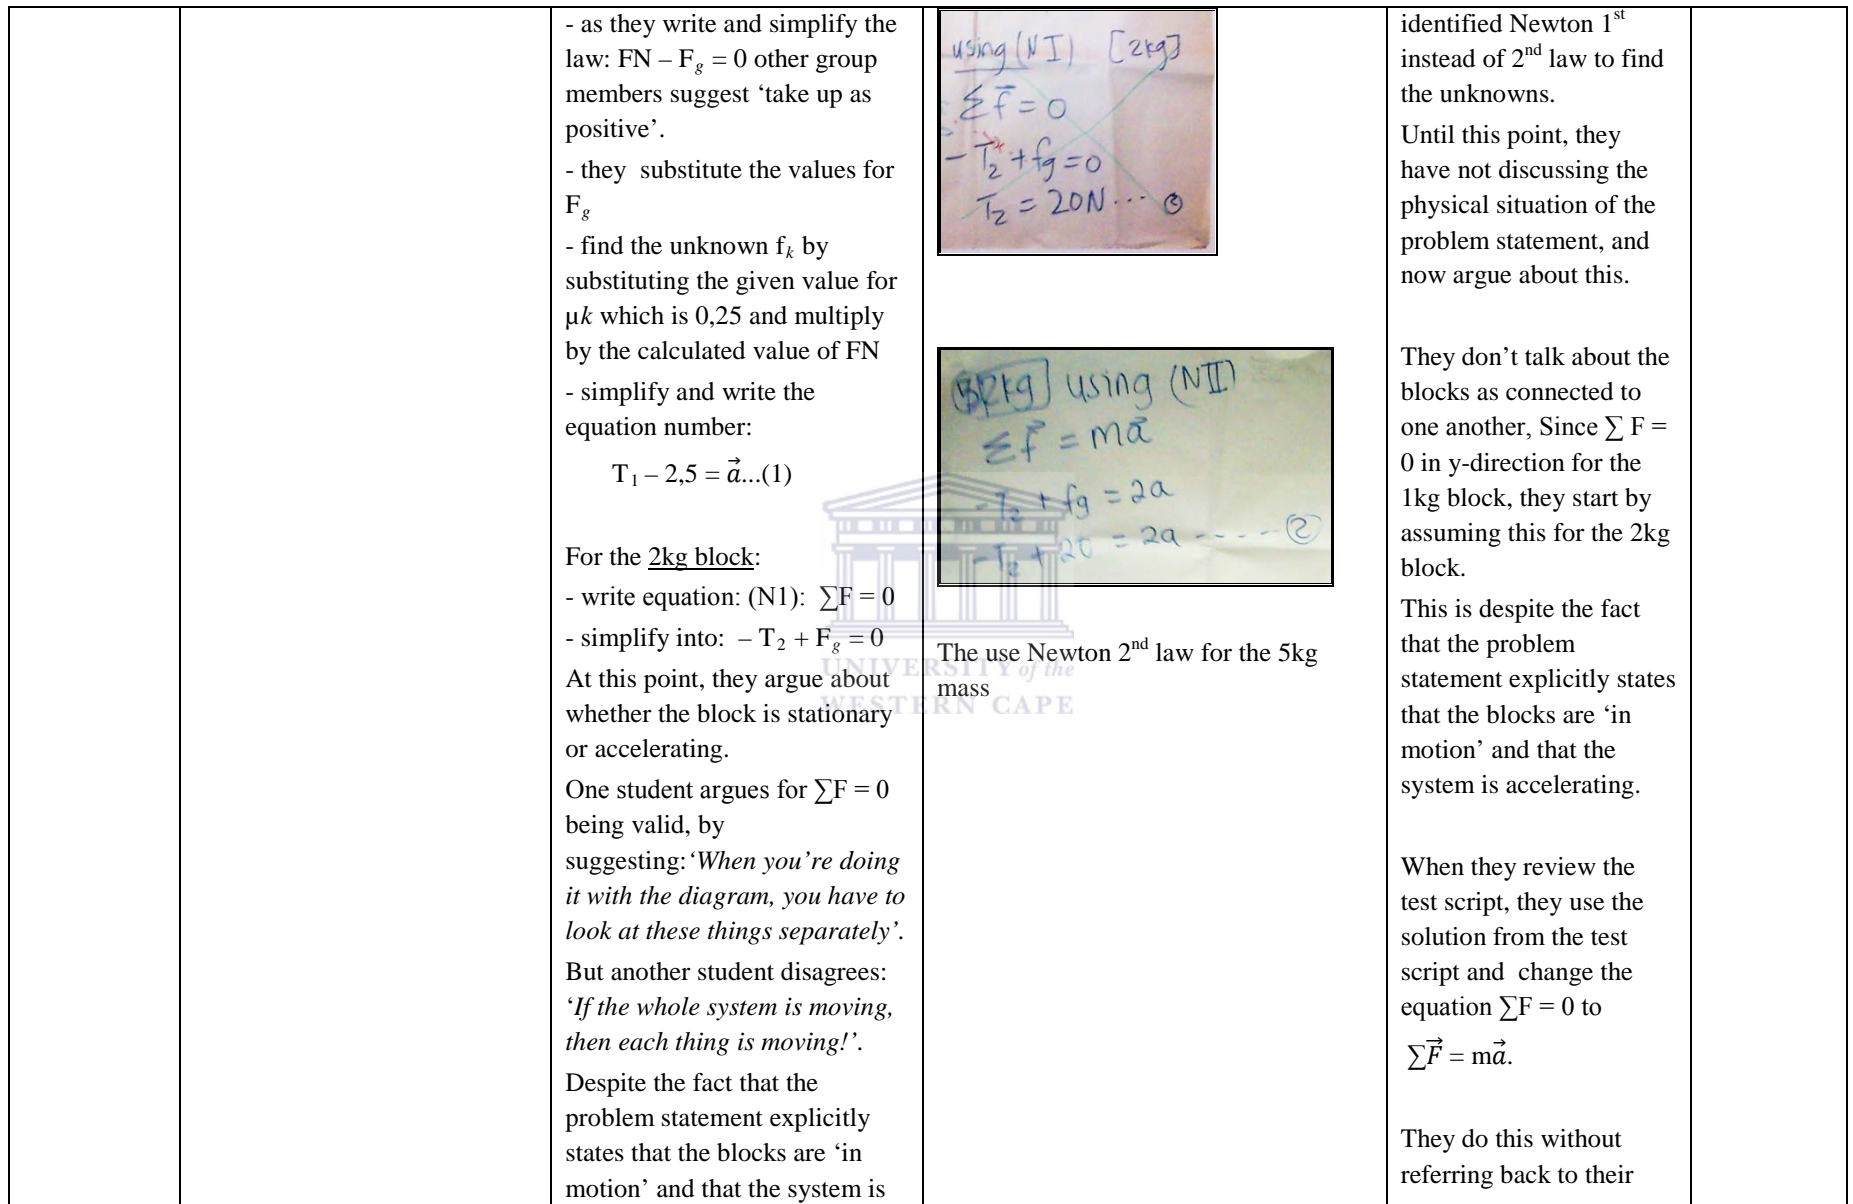 - as they write and simplify the
law: FN – Fg = 0 other group
members suggest ‘take up as
positive’.
- they substitute the values for
Fg
- find the unknown fk by
substituting the given value for
µk which is 0,25 and multiply
by the calculated value of FN
- simplify and write the
equation number:
T1 – 2,5 = a⃗...(1)
For the 2kg block:
- write equation: (N1): ∑F = 0
- simplify into: – T2 + Fg = 0
At this point, they argue about
whether the block is stationary
or accelerating.
One student argues for ∑F = 0
being valid, by
suggesting: ‘When you’re doing
it with the diagram, you have to
look at these things separately’.
But another student disagrees:
‘If the whole system is moving,
then each thing is moving!’.
Despite the fact that the
problem statement explicitly
states that the blocks are ‘in
motion’ and that the system is
using (N I) [2kg]
∑f⃗ = 0
- T2 + fg = 0
T2 = 20N ...
2kg using (NII)
∑f⃗ = ma⃗
- T2 + fg = 2a
- T2 + 20 = 2a ---- ②
The use Newton 2nd law for the 5kg
mass
UNIVERSITY of the
WESTERN CAPE
identified Newton 1st
instead of 2nd law to find
the unknowns.
Until this point, they
have not discussing the
physical situation of the
problem statement, and
now argue about this.
They don’t talk about the
blocks as connected to
one another, Since ∑ F =
0 in y-direction for the
1kg block, they start by
assuming this for the 2kg
block.
This is despite the fact
that the problem
statement explicitly states
that the blocks are ‘in
motion’ and that the
system is accelerating.
When they review the
test script, they use the
solution from the test
script and change the
equation ∑F = 0 to
∑F⃗ = ma⃗.
They do this without
referring back to their